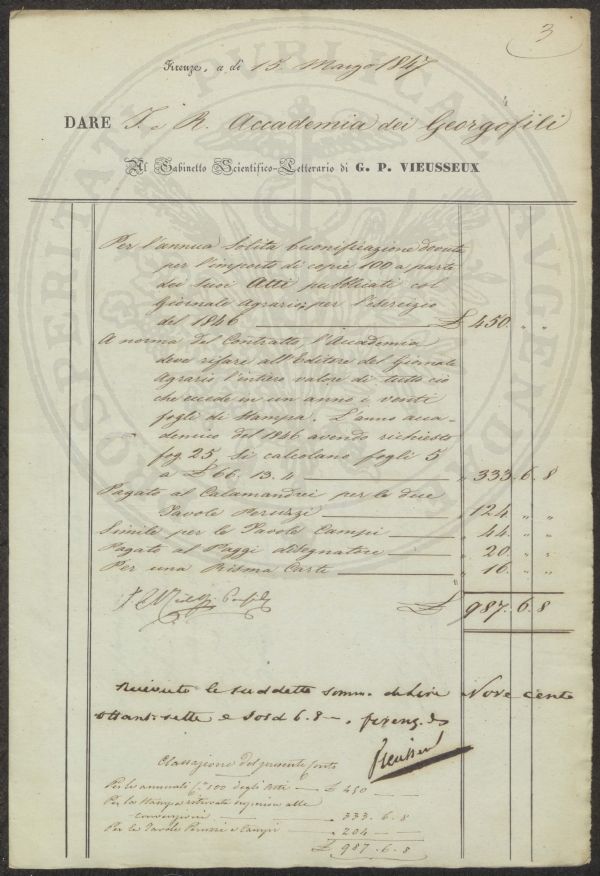 3
Firenze, a dì 15. Marzo 1847
DARE I. e R. Accademia dei Georgofili
Al Gabinetto Scientifico-Letterario di G. P. VIEUSSEUX
Per l'annua solita buonificazione dovuta
per l'importo di copie 100 a parte
dei suoi Atti pubblicati col
Giornale Agrario, per l'esercizio
del 1846 £ 450. " "
A norma del Contratto, l'Accademia
deve rifare all'Editore del Giornale
Agrario l'intiero valore di tutto ciò
che eccede in un anno i venti
fogli di stampa. L'anno acca-
demico del 1846 avendo richiesto
fog. 25, si calcolano fogli 5
a £ 66. 13. 4 " 333. 6. 8
Pagato al Calamandrei per le due
Tavole Peruzzi " 124 " "
Simile per le Tavole Campi " 44. " "
Pagato al Paggi disegnatore " 20. " "
Per una Risma Carta " 16. " "
£ 987. 6. 8
Ricevuto le suddette somm. di Lire Nove cento
ottant. sette e Soldi 6. 8
Vieusseux
Classazione del presente Conto
Per le annuali 100 degli Atti £ 450
Per la Stampa alle
convenzioni 333. 6. 8
Per le Tavole Peruzzi e Campi " 204
£ 987. 6. 8
PROSPERITATI PUBLICAE AUGENDAE